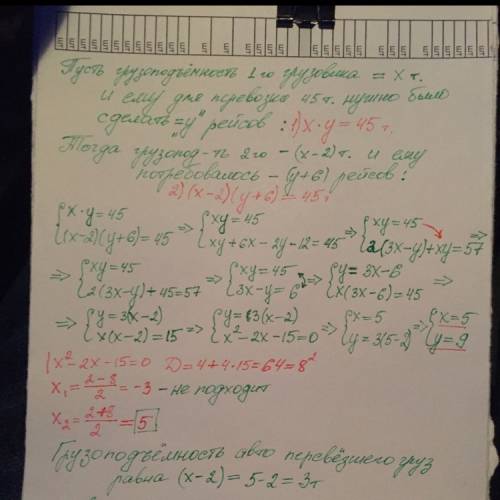 Пусть грузоподъёмность 1го грузовика = x т.
и ему для перевозки 45 т. нужно было
сделать = "y" рейсов : 1) x·y = 45 т.
Тогда грузопод-ть 2го - (x-2) т. и ему
потребовалось - (y+6) рейсов :
2) (x-2)(y+6) = 45 т
{x·y = 45 (x-2)(y+6) = 45 => {xy = 45 xy+6x-2y-12 = 45 => {xy = 45 2(3x-y)+xy = 57 =>
=> {xy = 45 2(3x-y)+45 = 57 => {xy = 45 3x-y = 6 => {y = 3x-6 x(3x-6) = 45 =>
=> {y = 3(x-2) x(x-2) = 15 => {y = 3(x-2) x²-2x-15 = 0 => {x = 5 y = 3(5-2) => {x = 5 y = 9
x²-2x-15 = 0 D = 4+4·15 = 64 = 8²
x₁ = (2-8)/2 = -3 - не подходит
x₂ = (2+8)/2 = 5
Грузоподъёмность авто перевёзшего груз
равна (x-2) = 5-2 = 3т